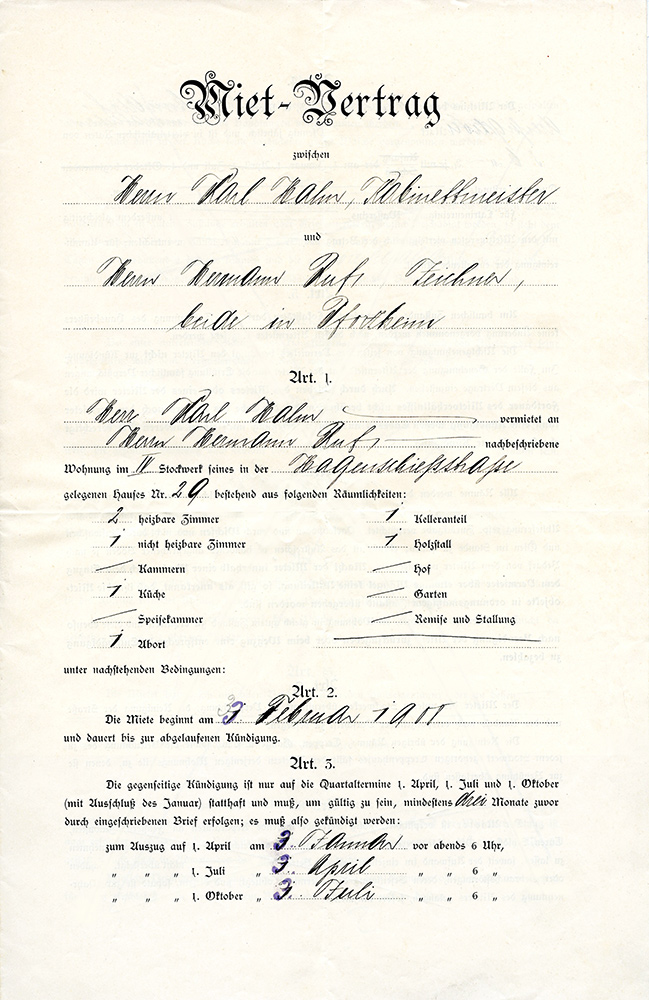 Miet-Vertrag
zwischen
Herrn Karl Hahn, Kabinettmeister
und
Herrn Hermann Ruf, Zeichner,
beide in Pforzheim
Art. 1.
Herr Karl Hahn vermietet an
Herrn Hermann Ruf, nachbeschriebene
Wohnung im IV Stockwerk seines in der Hagenschießstraße
gelegenen Hauses Nr. 29 bestehend aus folgenden Räumlichkeiten:
2 heizbare Zimmer
1 nicht heizbare Zimmer
— Kammern
1 Küche
— Speisekammer
1 Abort
1 Kelleranteil
1 Holzstall
— Hof
— Garten
— Remise und Stallung
unter nachstehenden Bedingungen:
Art. 2.
Die Miete beginnt am 3. Februar
und dauert bis zur abgelaufenen Kündigung.
Art. 3.
Die gegenseitige Kündigung ist nur auf die Quartaltermine 1. April, 1. Juli und 1. Oktober
(mit Ausschluß des Januar) statthaft und muß, um gültig zu sein, mindestens drei Monate zuvor
durch eingeschriebenen Brief erfolgen; es muß also gekündigt werden:
zum Auszug auf 1. April am 3. Januar vor abends 6 Uhr,
„ „ „ 1. Juli „ 3. April „ „ 6 „
„ „ „ 1. Oktober „ 3. Juli „ „ 6 „